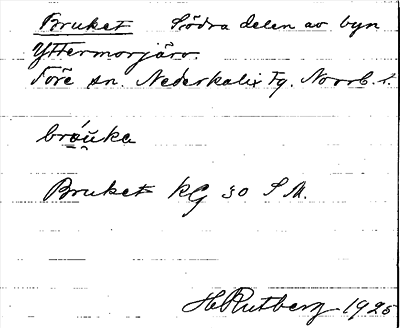 Bruket Södra delen av byn
Yttermorjärv.
Töre sn. Nederkalix Tg. Norrb. l.
bröu̯ka
Bruket KG 30 S M.
H Rutberg 1925